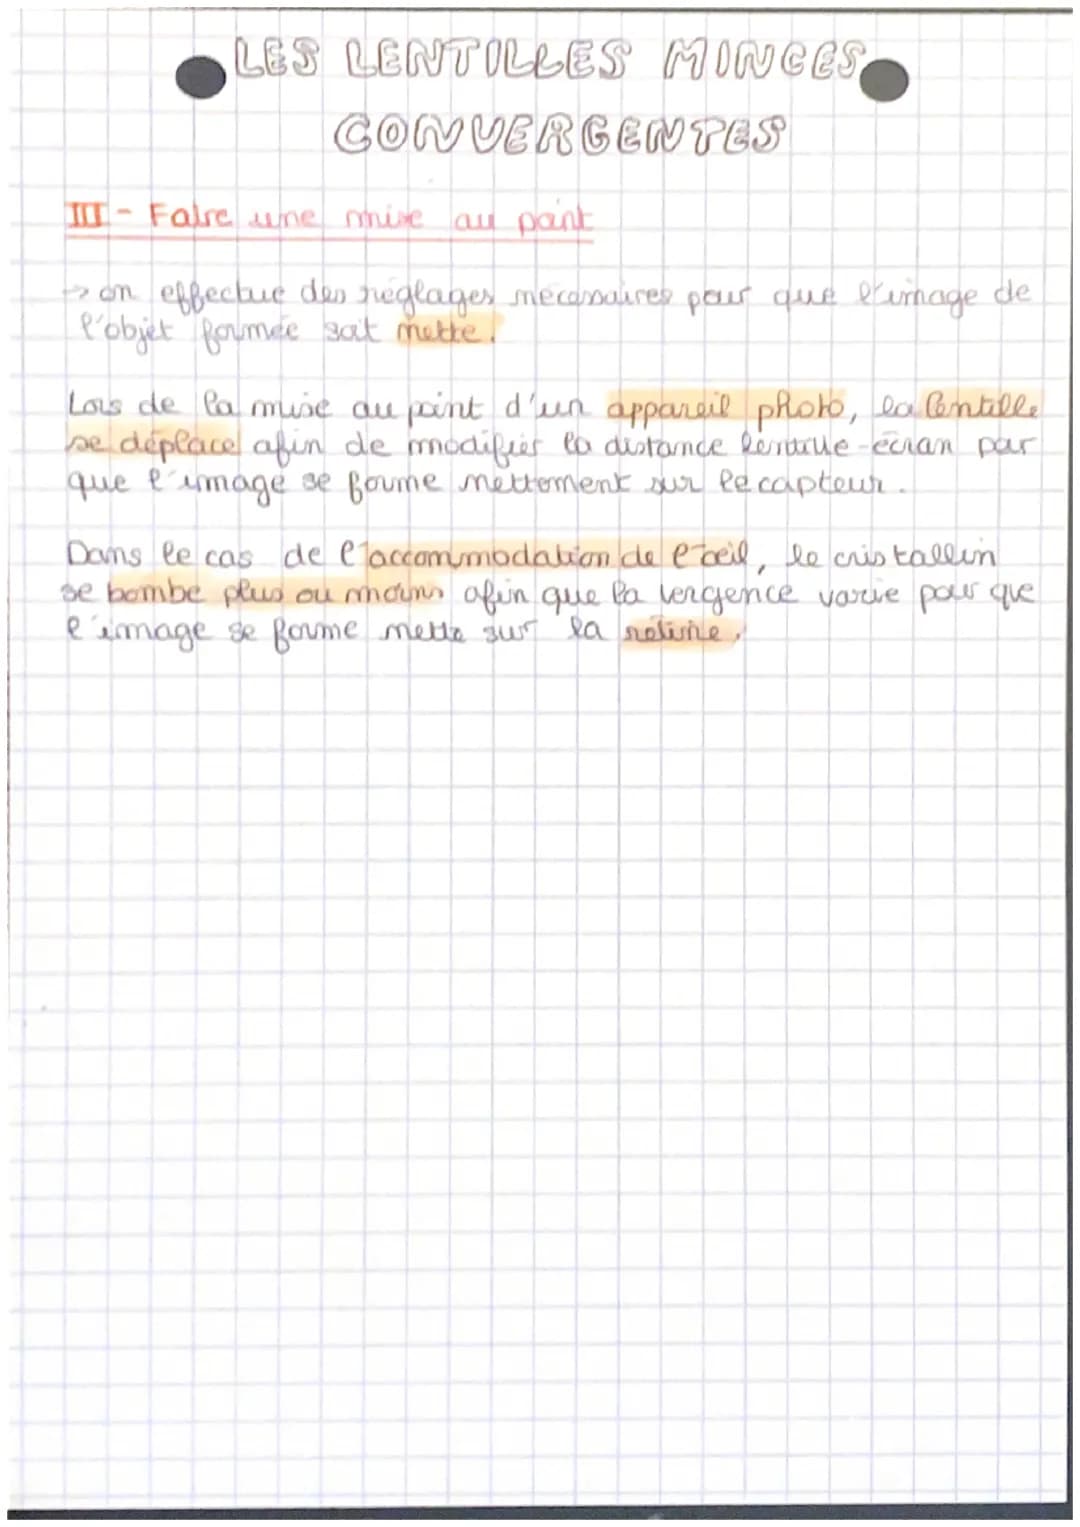 LES LENTILLES MINCES
CONVERGENTES
III - Faire une mise au point
→ on effectue des réglages nécessaires pour que l'image de
l'objet formée soit nette.
Lors de la mise au point d'un appareil photo, la lentille
se déplace afin de modifier la distance lentille-écran par
que l'image se forme nettement sur le capteur.
Dans le cas de l'accommodation de l'œil, le cristallin
se bombe plus ou moins afin que la vergence varie pour que
l'image se forme nette sur la rétine.